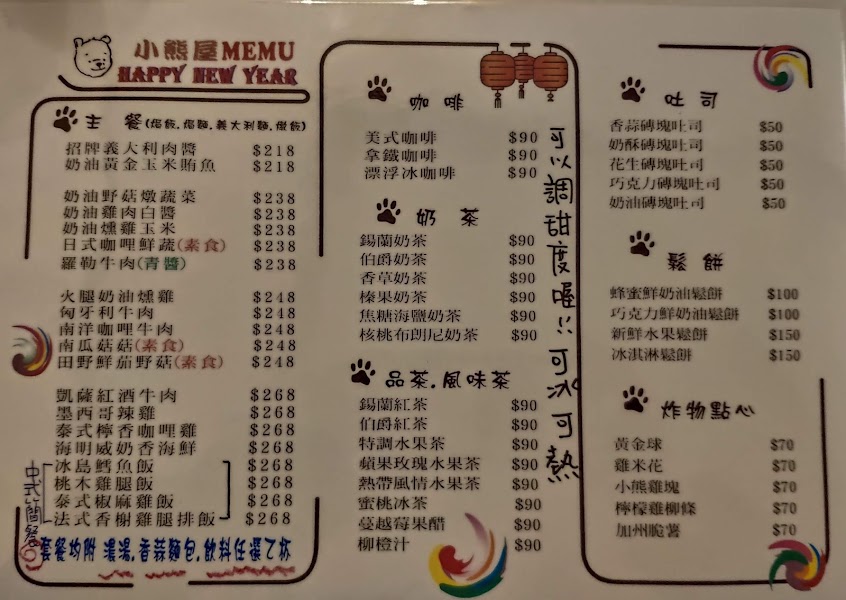 小熊屋MEMU
HAPPY NEW YEAR
主 餐(焗飯.焗麵.義大利麵.燉飯)
招牌義大利肉醬 $218
奶油黃金玉米鮪魚 $218
奶油野菇燉蔬菜 $238
奶油雞肉白醬 $238
奶油燻雞玉米 $238
日式咖哩鮮蔬(素食) $238
羅勒牛肉(青醬) $238
火腿奶油燻雞 $248
匈牙利牛肉 $248
南洋咖哩牛肉 $248
南瓜菇菇(素食) $248
田野鮮茄野菇(素食) $248
凱薩紅酒牛肉 $268
墨西哥辣雞 $268
泰式檸香咖哩雞 $268
海明威奶香海鮮 $268
冰島鱈魚飯 $268
桃木雞腿飯 $268
泰式椒麻雞飯 $268
法式香榭雞腿排飯 $268
中式簡餐
套餐均附 濃湯.香蒜麵包.飲料任選乙杯
咖 啡
美式咖啡 $90
拿鐵咖啡 $90
漂浮冰咖啡 $90
奶 茶
錫蘭奶茶 $90
伯爵奶茶 $90
香草奶茶 $90
榛果奶茶 $90
焦糖海鹽奶茶 $90
核桃布朗尼奶茶 $90
品茶.風味茶
錫蘭紅茶 $90
伯爵紅茶 $90
特調水果茶 $90
蘋果玫瑰水果茶 $90
熱帶風情水果茶 $90
蜜桃冰茶 $90
蔓越莓果醋 $90
柳橙汁 $90
可以調甜度喔!! 可冰可熱
吐 司
香蒜磚塊吐司 $50
奶酥磚塊吐司 $50
花生磚塊吐司 $50
巧克力磚塊吐司 $50
奶油磚塊吐司 $50
鬆 餅
蜂蜜鮮奶油鬆餅 $100
巧克力鮮奶油鬆餅 $100
新鮮水果鬆餅 $150
冰淇淋鬆餅 $150
炸物點心
黃金球 $70
雞米花 $70
小熊雞塊 $70
檸檬雞柳條 $70
加州脆薯 $70